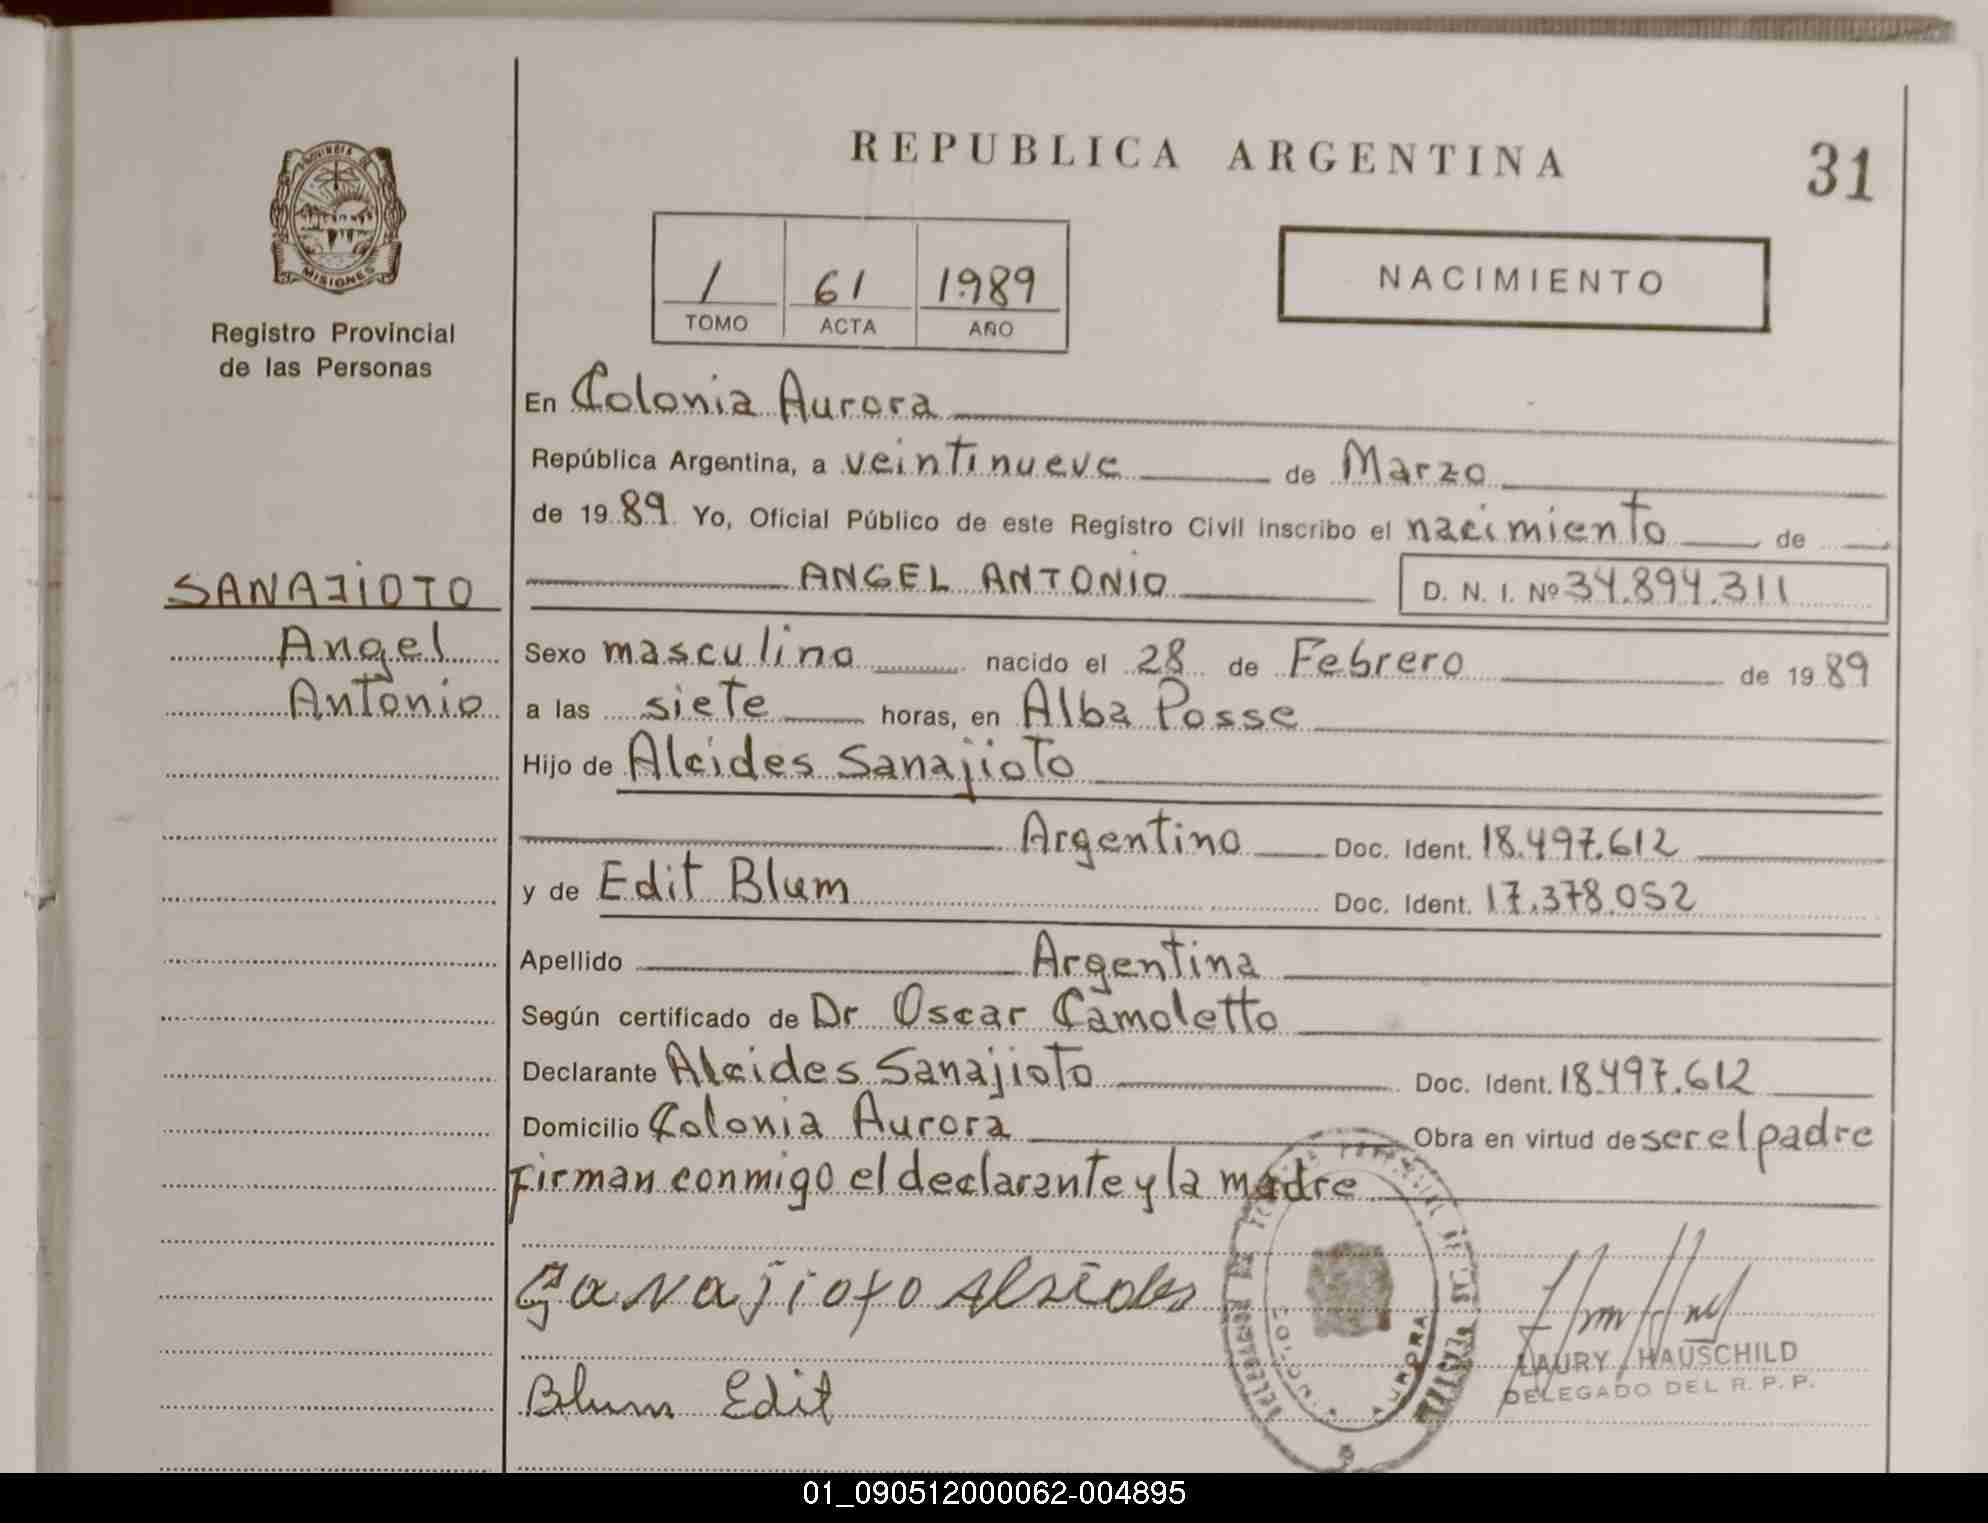 REPUBLICA ARGENTINA
31
PROVINCIA DE
MISIONES
Registro Provincial
de las Personas
1 61 1989
TOMO ACTA AÑO
NACIMIENTO
En Colonia Aurora
República Argentina, a veintinueve de Marzo
de 1989 Yo, Oficial Público de este Registro Civil inscribo el nacimiento de
SANAJIOTO
Angel
Antonio
ANGEL ANTONIO D. N. I. Nº 34.894.311
Sexo masculino nacido el 28 de Febrero de 1989
a las siete horas, en Alba Posse
Hijo de Alcides Sanajioto
Argentino Doc. Ident. 18.497.612
y de Edit Blum Doc. Ident. 17.378.052
Apellido Argentina
Según certificado de Dr Oscar Camoletto
Declarante Alcides Sanajioto Doc. Ident. 18.497.612
Domicilio Colonia Aurora Obra en virtud de ser el padre
Firman conmigo el declarante y la madre
Sanajioto Alsides
Blum Edit
AURORA
LAURY HAUSCHILD
DELEGADO DEL R. P. P.
01_090512000062-004895